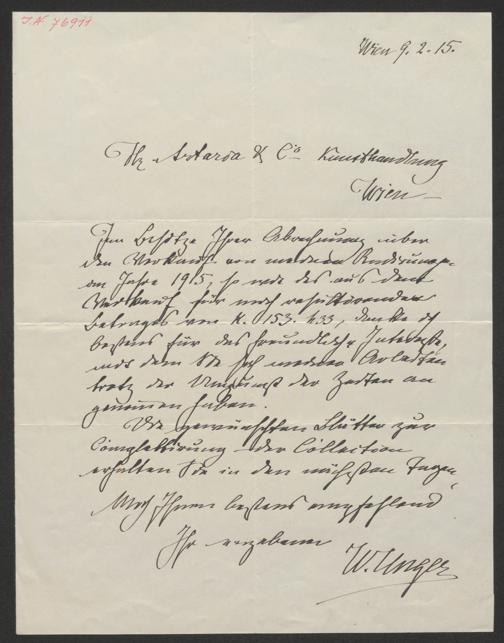 I.N. 76911
Wien 9. 2. 15.
Artaria & Co Kunsthandlung
Wien
Im Besitze Ihrer Abrechnung über
den Verkauf von meinen Radirungen
im Jahre 1915, so wie des aus dem
Verkauf für mich resultirenden
Betrages von K. 153. h33, danke ich
bestens für das freundliche Interesse,
mit dem Sie sich meiner Arbeiten
trotz der Ungunst der Zeiten an
genommen haben.
Die gewünschten Blätter zur
Completirung der Collection
erhalten Sie in den nächsten Tagen.
Mich Ihnen bestens empfehlend
Ihr ergebener
W. Unger